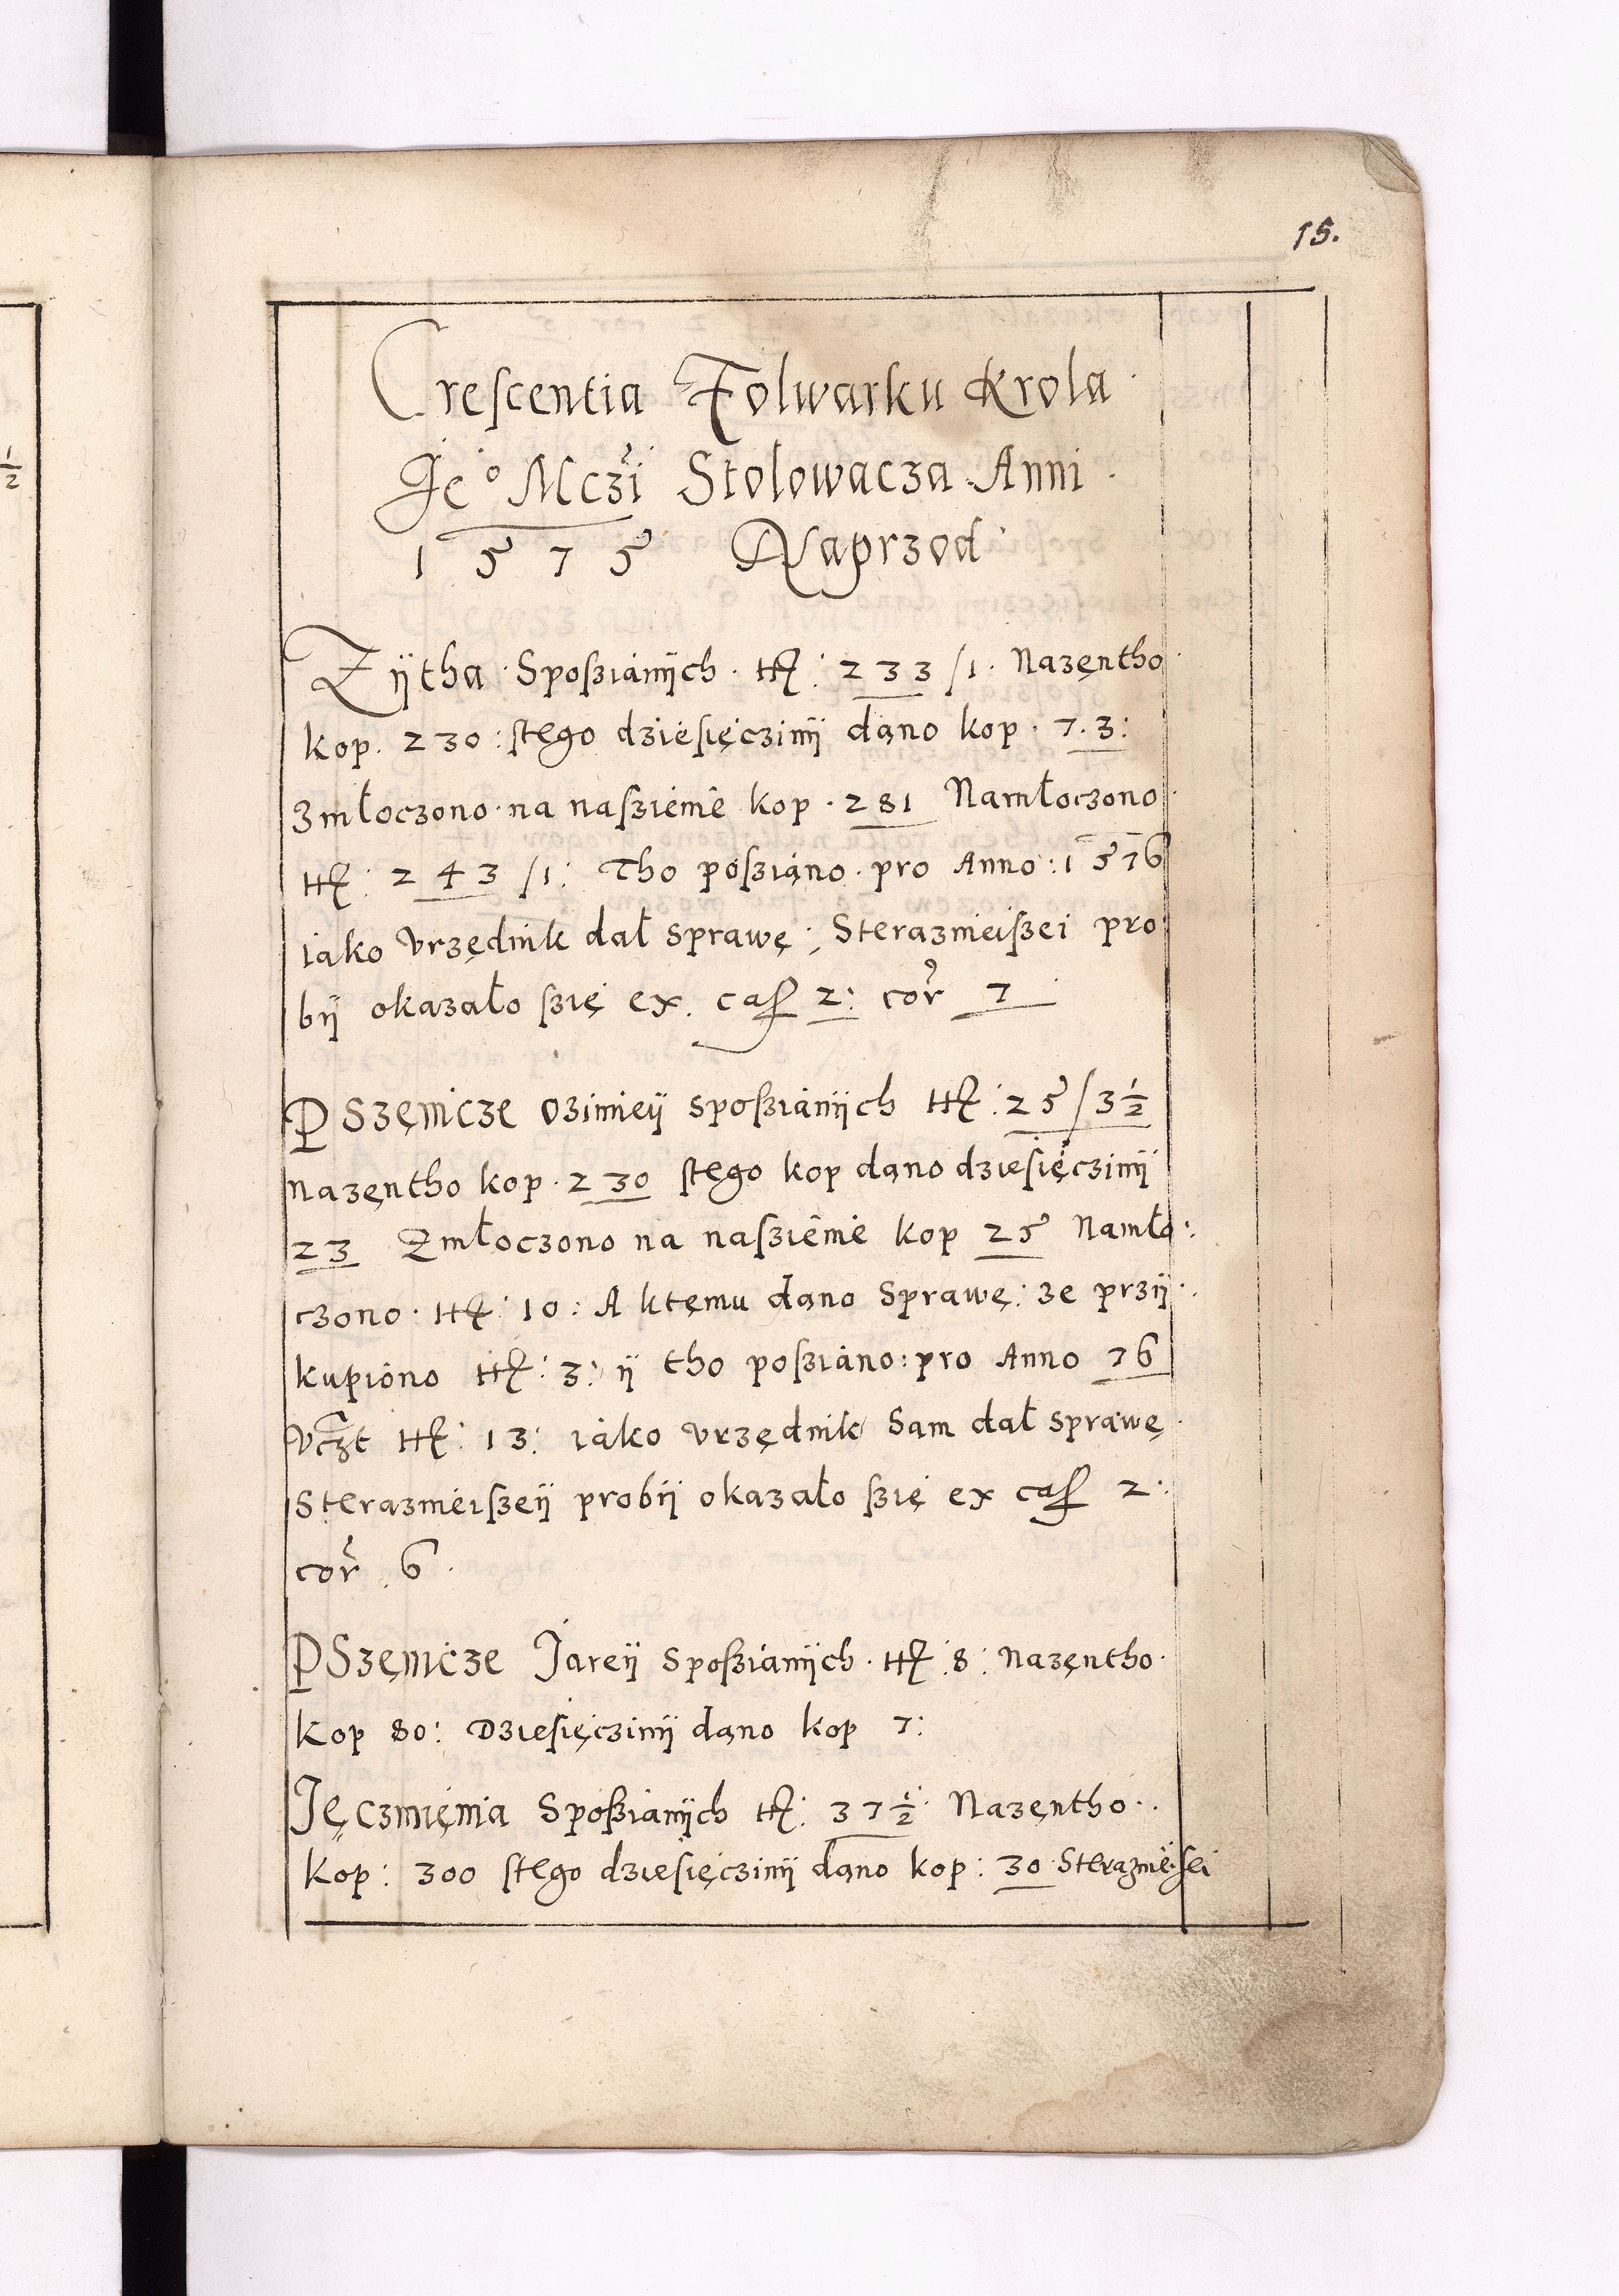 15.
Crescentia Folwarku Krola
Je° Mczi Stolowacza Anni
1575 Naprzod
Zÿtha Sposzianÿch tt: 233/1. Nazęntho
kop. 230: stego dziesięczinÿ dąno kop. 7.3:
Zmłoczono na naszienie kop. 281 Namłoczono
tt: 243/1: Tho posziąno pro Anno: 1576
iako Vrzędnik dał sprawę: Sterazneiszei pro
bÿ okazało szię ex. cass 2: cor 7
PSzęnicze Ozimieÿ sposzianÿch tt: 25/3½
nazęntho kop. 230 stego kop dąno dziesięczinÿ
23 Zmłoczono na naszienie kop 25 Namło:
czono. tt: 10: A ktęmu dąno Sprawę: ze przÿ
kupiono tt: 3: ÿ tho posziano: pro Anno 76
Vczt tt: 13: iako vrzędnik Sam dał sprawę
Steraznieiszeÿ probÿ okazało szię ex cass 2:
cor 6.
PSzęnicze Jareÿ Sposzianÿch. tt: 8: nazęntho.
kop 80: Dziesięczinÿ dąno kop 7:
Jęczmięnia Sposzianÿch tt: 37½ Nazęntho..
kop: 300 stego dziesięczinÿ dąno kop: 30 Steraznieisei